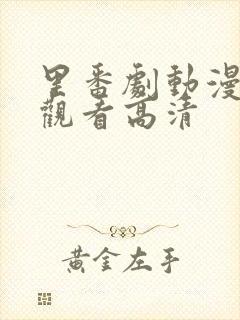 里番劇動漫
觀看高清
黄金左手